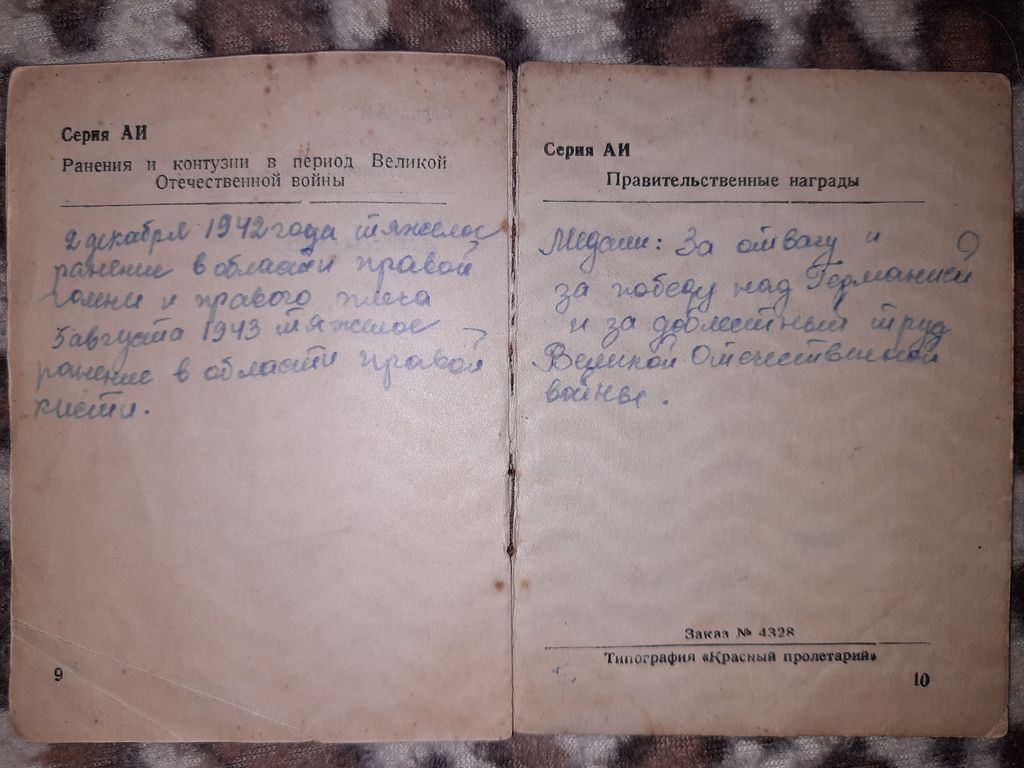 Серия АИ
Ранения и контузии в период Великой
Отечественной войны
2 декабря 1942 года тяжелое
ранение в области правой
голени и правого плеча
5 августа 1943 тяжелое
ранение в области правой
кисти.
9
Серия АИ
Правительственные награды
Медали: За отвагу и
за победу над Германией
и за доблестный труд
Великой Отечественной
войны.
Заказ № 4328
Типография «Красный пролетарий»
10